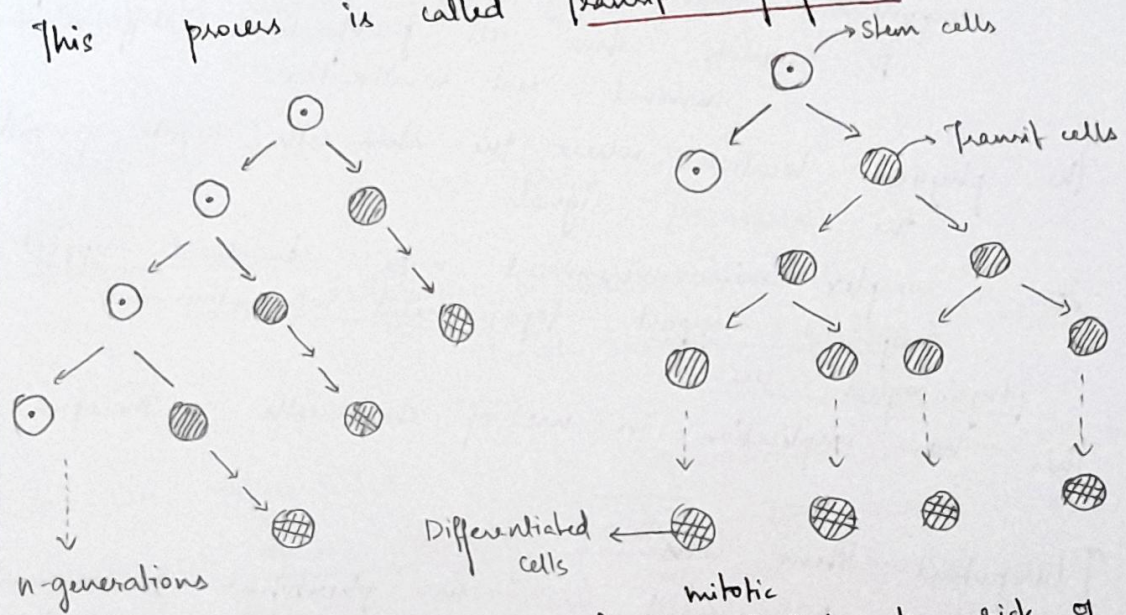 This process is called
Stem cells
Transit cells
Differentiated
cells
n-generations
mitotic